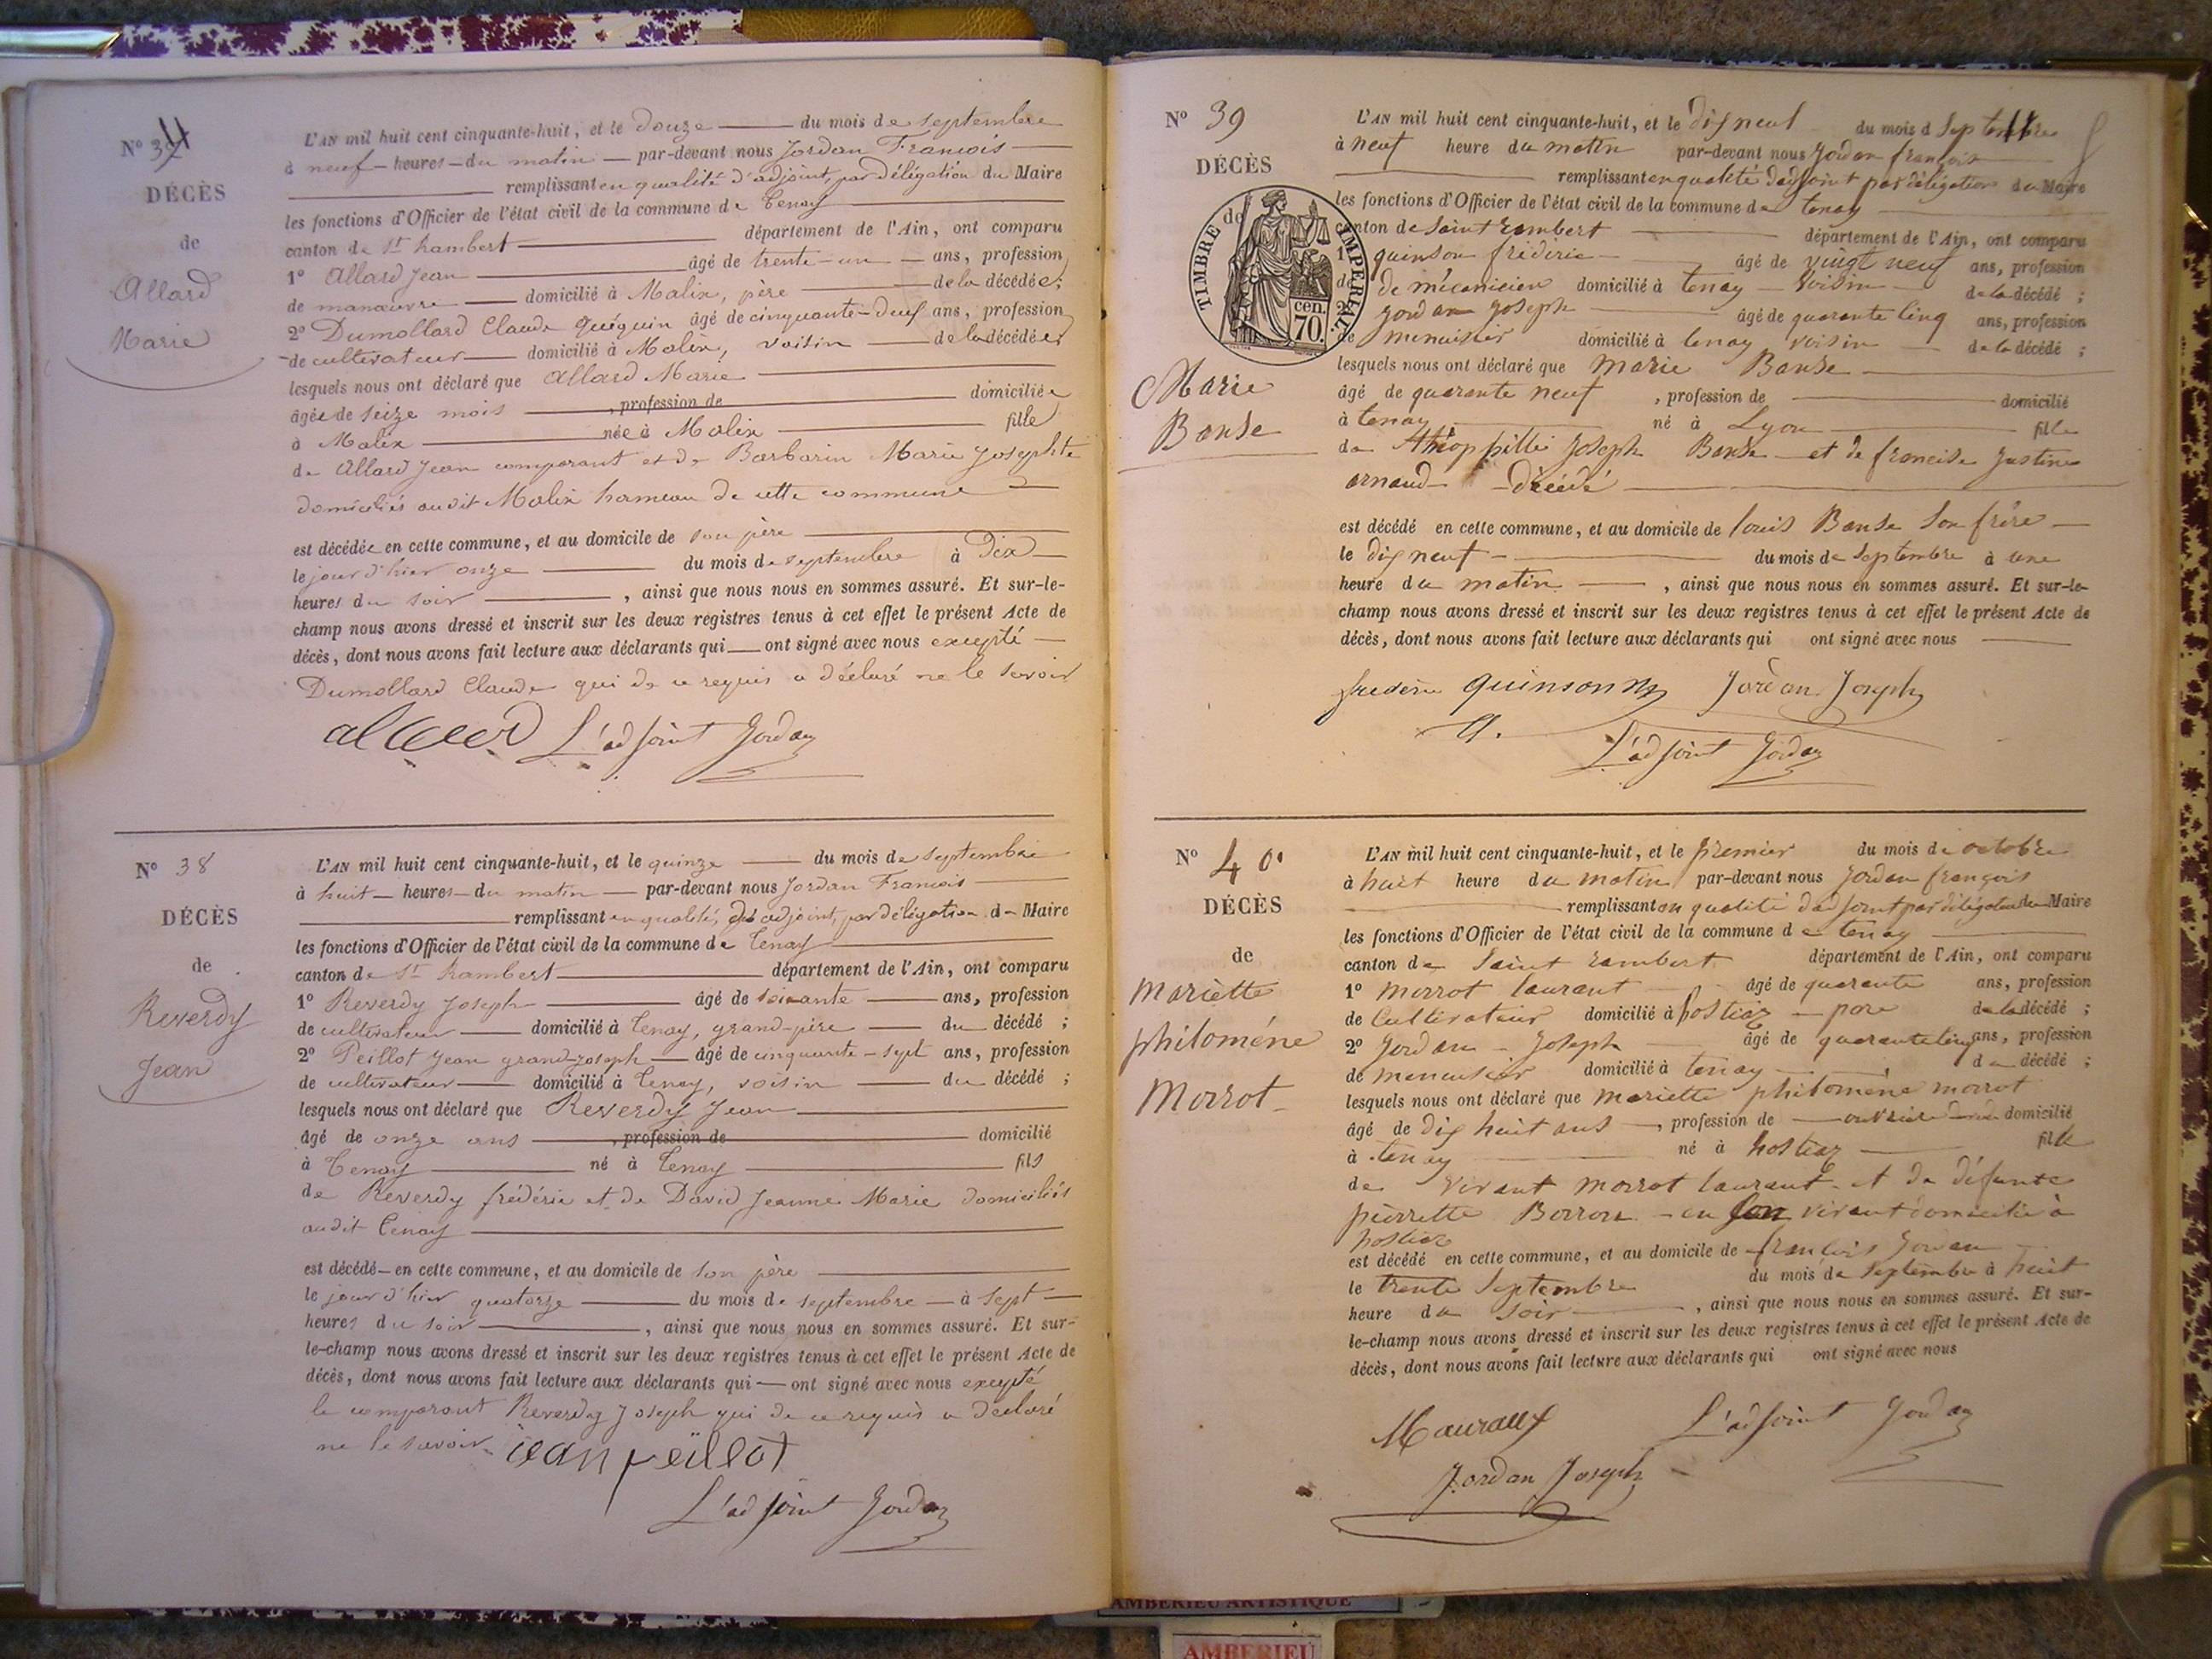 N° 37
DÉCÈS
de
Allard
Marie
L'AN mil huit cent cinquante-huit, et le douze du mois de septembre
à neuf heures du matin par-devant nous Jordan François
remplissant en qualité d'adjoint, par délégation du Maire
les fonctions d'Officier de l'état civil de la commune de Tenay
canton de St Rambert département de l'Ain, ont comparu
1° Allard Jean âgé de trente-un ans, profession
de manœuvre domicilié à Malix, père de la décédée ;
2° Dumollard Claude âgé de cinquante-deux ans, profession
de cultivateur domicilié à Malix, voisin de la décédée ;
lesquels nous ont déclaré que Allard Marie
âgée de seize mois, profession de domiciliée
à Malix née à Malix fille
de Allard Jean comparant et de Barbarin Marie Josephte
domiciliés audit Malix hameau de cette commune
est décédée en cette commune, et au domicile de son père
le jour d'hier onze du mois de septembre à Dix
heures du soir, ainsi que nous nous en sommes assuré. Et sur-le-
champ nous avons dressé et inscrit sur les deux registres tenus à cet effet le présent Acte de
décès, dont nous avons fait lecture aux déclarants qui ont signé avec nous excepté
Dumollard Claude qui de ce requis a déclaré ne le savoir
L'adjoint Jordan
N° 38
DÉCÈS
de
Reverdy
Jean
L'AN mil huit cent cinquante-huit, et le quinze du mois de septembre
à huit heures du matin par-devant nous Jordan François
remplissant en qualité, adjoint, par délégation du Maire
les fonctions d'Officier de l'état civil de la commune de Tenay
canton de St Rambert département de l'Ain, ont comparu
1° Reverdy Joseph âgé de soixante ans, profession
de cultivateur domicilié à Tenay, grand-père du décédé ;
2° Peillot Jean grand-Joseph âgé de cinquante-sept ans, profession
de cultivateur domicilié à Tenay, voisin du décédé ;
lesquels nous ont déclaré que Reverdy Jean
âgé de onze ans, profession de domicilié
à Tenay né à Tenay fils
de Reverdy frédéric et de David Jeanne Marie domiciliés
audit Tenay
est décédé en cette commune, et au domicile de son père
le jour d'hier quatorze du mois de septembre à sept
heures du soir, ainsi que nous nous en sommes assuré. Et sur-
le-champ nous avons dressé et inscrit sur les deux registres tenus à cet effet le présent Acte de
décès, dont nous avons fait lecture aux déclarants qui ont signé avec nous excepté
le comparant Reverdy Joseph qui de ce requis a déclaré
ne le savoir jean peillot
L'adjoint Jordan
N° 39
DÉCÈS
de
TIMBRE IMPÉRIAL
cen.
70.
Marie
Banse
L'AN mil huit cent cinquante-huit, et le dix neuf du mois d septembre
à neuf heure du matin par-devant nous Jordan françois
remplissant en qualité dadjoint par délégation du Maire
les fonctions d'Officier de l'état civil de la commune de tenay
canton de saint rambert département de l'Ain, ont comparu
1° quinson frédéric âgé de vingt neuf ans, profession
de mécanicien domicilié à tenay voisin de la décédé ;
jordan joseph âgé de quarante cinq ans, profession
de menuisier domicilié à tenay voisin de la décédé ;
lesquels nous ont déclaré que marie Banse
âgé de quarante neuf, profession de domicilié
à tenay né à Lyon fille
de théophille joseph Banse et de francise justine
arnaud décédé
est décédé en cette commune, et au domicile de louis Banse son frère
le dix neuf du mois de septembre à une
heure du matin, ainsi que nous nous en sommes assuré. Et sur-le-
champ nous avons dressé et inscrit sur les deux registres tenus à cet effet le présent Acte de
décès, dont nous avons fait lecture aux déclarants qui ont signé avec nous
frederic quinson Jordan Joseph
L'adjoint Jordan
N° 40
DÉCÈS
de
mariette
philomène
Morrot
L'AN mil huit cent cinquante-huit, et le premier du mois de octobre
à huit heure du matin par-devant nous jordan françois
remplissant en qualité dadjoint par délégation du Maire
les fonctions d'Officier de l'état civil de la commune de tenay
canton de saint rambert département de l'Ain, ont comparu
1° morrot laurant âgé de quarante ans, profession
de cultivateur domicilié à hostiaz pere de la décédé ;
2° jordan joseph âgé de quarante cinq ans, profession
de menuisier domicilié à tenay d décédé ;
lesquels nous ont déclaré que mariette philomène morrot
âgé de dix huit ans, profession de ouvrière domicilié
à tenay né à hostiaz fille
de vivant morrot laurant et de défunte
pierrette Borron en son vivant domicilié à
hostiaz
est décédé en cette commune, et au domicile de françois jordan
le trente septembre du mois de septembre à huit
heure du soir, ainsi que nous nous en sommes assuré. Et sur-
le-champ nous avons dressé et inscrit sur les deux registres tenus à cet effet le présent Acte de
décès, dont nous avons fait lecture aux déclarants qui ont signé avec nous
L'adjoint Jordan
Jordan Joseph
AMBERIEU ARTISTIQUE
AMBERIEU